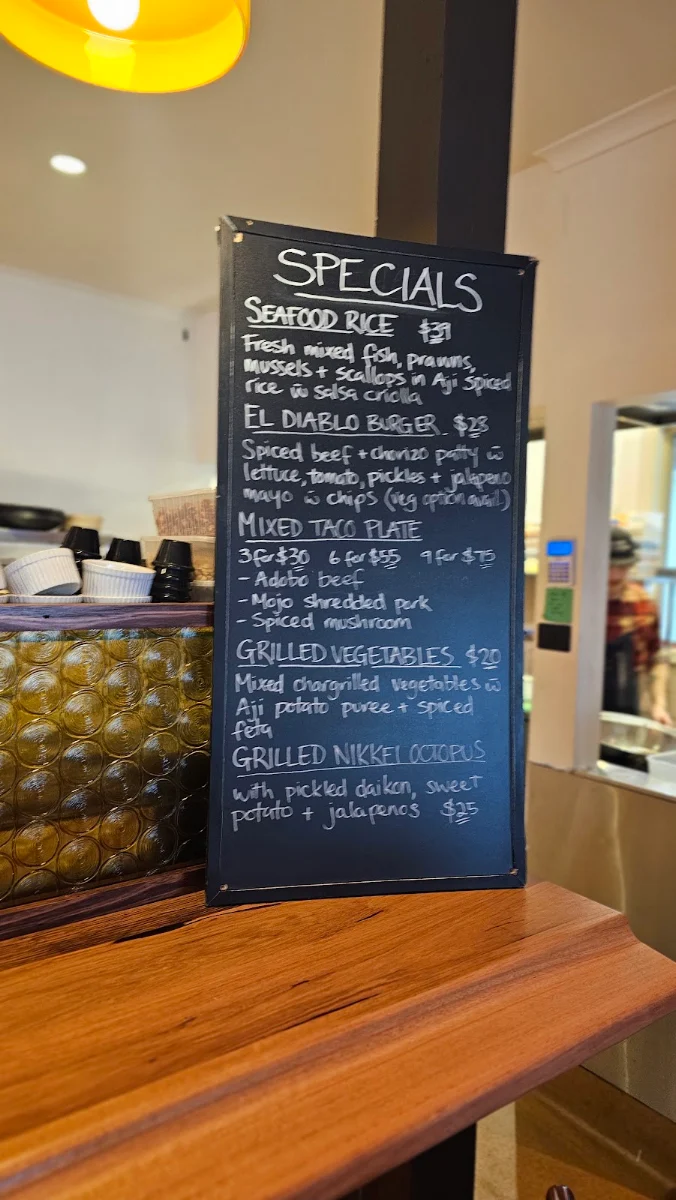 SPECIALS
SEAFOOD RICE $39
Fresh mixed fish, prawns,
mussels + scallops in Aji spiced
rice w̄ salsa criolla
EL DIABLO BURGER $28
Spiced beef + chorizo patty w̄
lettuce, tomato, pickles + jalapeno
mayo w̄ chips (veg option avail)
MIXED TACO PLATE
3 for $30 6 for $55 9 for $75
- Adobo beef
- Mojo shredded pork
- Spiced mushroom
GRILLED VEGETABLES $20
Mixed chargrilled vegetables w̄
Aji potato puree + spiced
feta
GRILLED NIKKEI OCTOPUS
with pickled daikon, sweet
potato + jalapenos $25